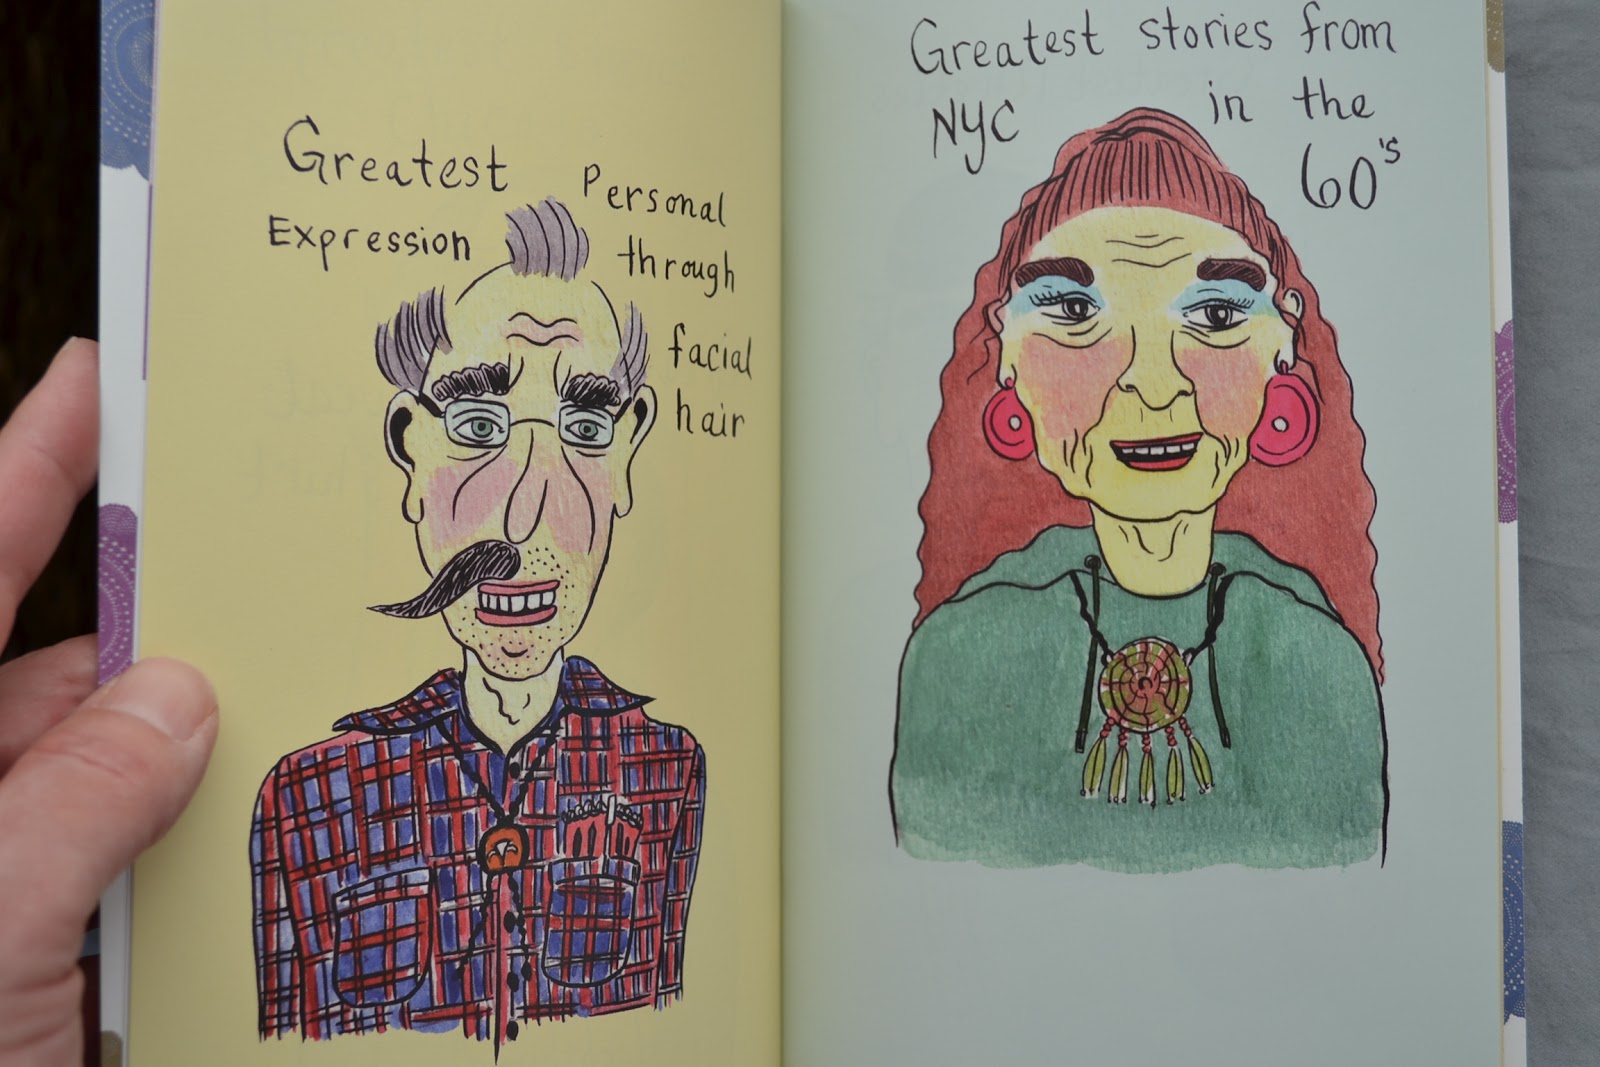 Greatest Personal
Expression through
facial
hair
Greatest stories from
NYC in the
60's